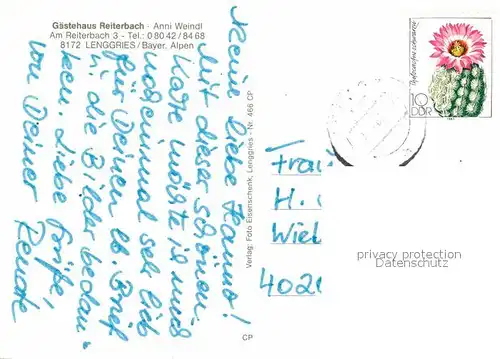 Gästehaus Reiterbach · Anni Weindl
Am Reiterbach 3 - Tel.: 0 80 42 / 84 68
8172 LENGGRIES / Bayer. Alpen
Meine liebe Hanno!
Mit dieser schönen
Karte möchte ich mich
nocheinmal sehr lieb
für Deinen lb. Brief
u. die Bilder bedan-
ken. Liebe Grüße,
von Deiner Renate
Verlag: Foto Eisenschenk, Lenggries - Nr. 466 CP
CP
10
DDR
Frau
H.
Wiel
402
privacy protection
Datenschutz